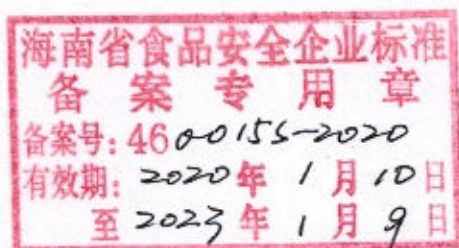 海南省食品安全企业标准
备案专用章
备案号:4600155-2020
有效期:2020年1月10日
至2023年1月9日